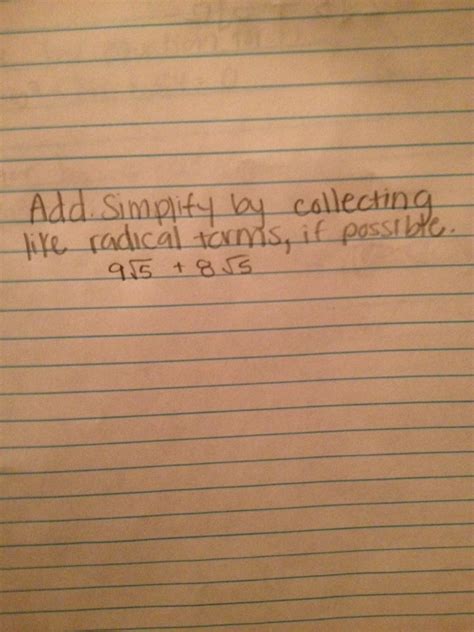 Add. Simplify by collecting
like radical terms, if possible.
9√5 + 8√5